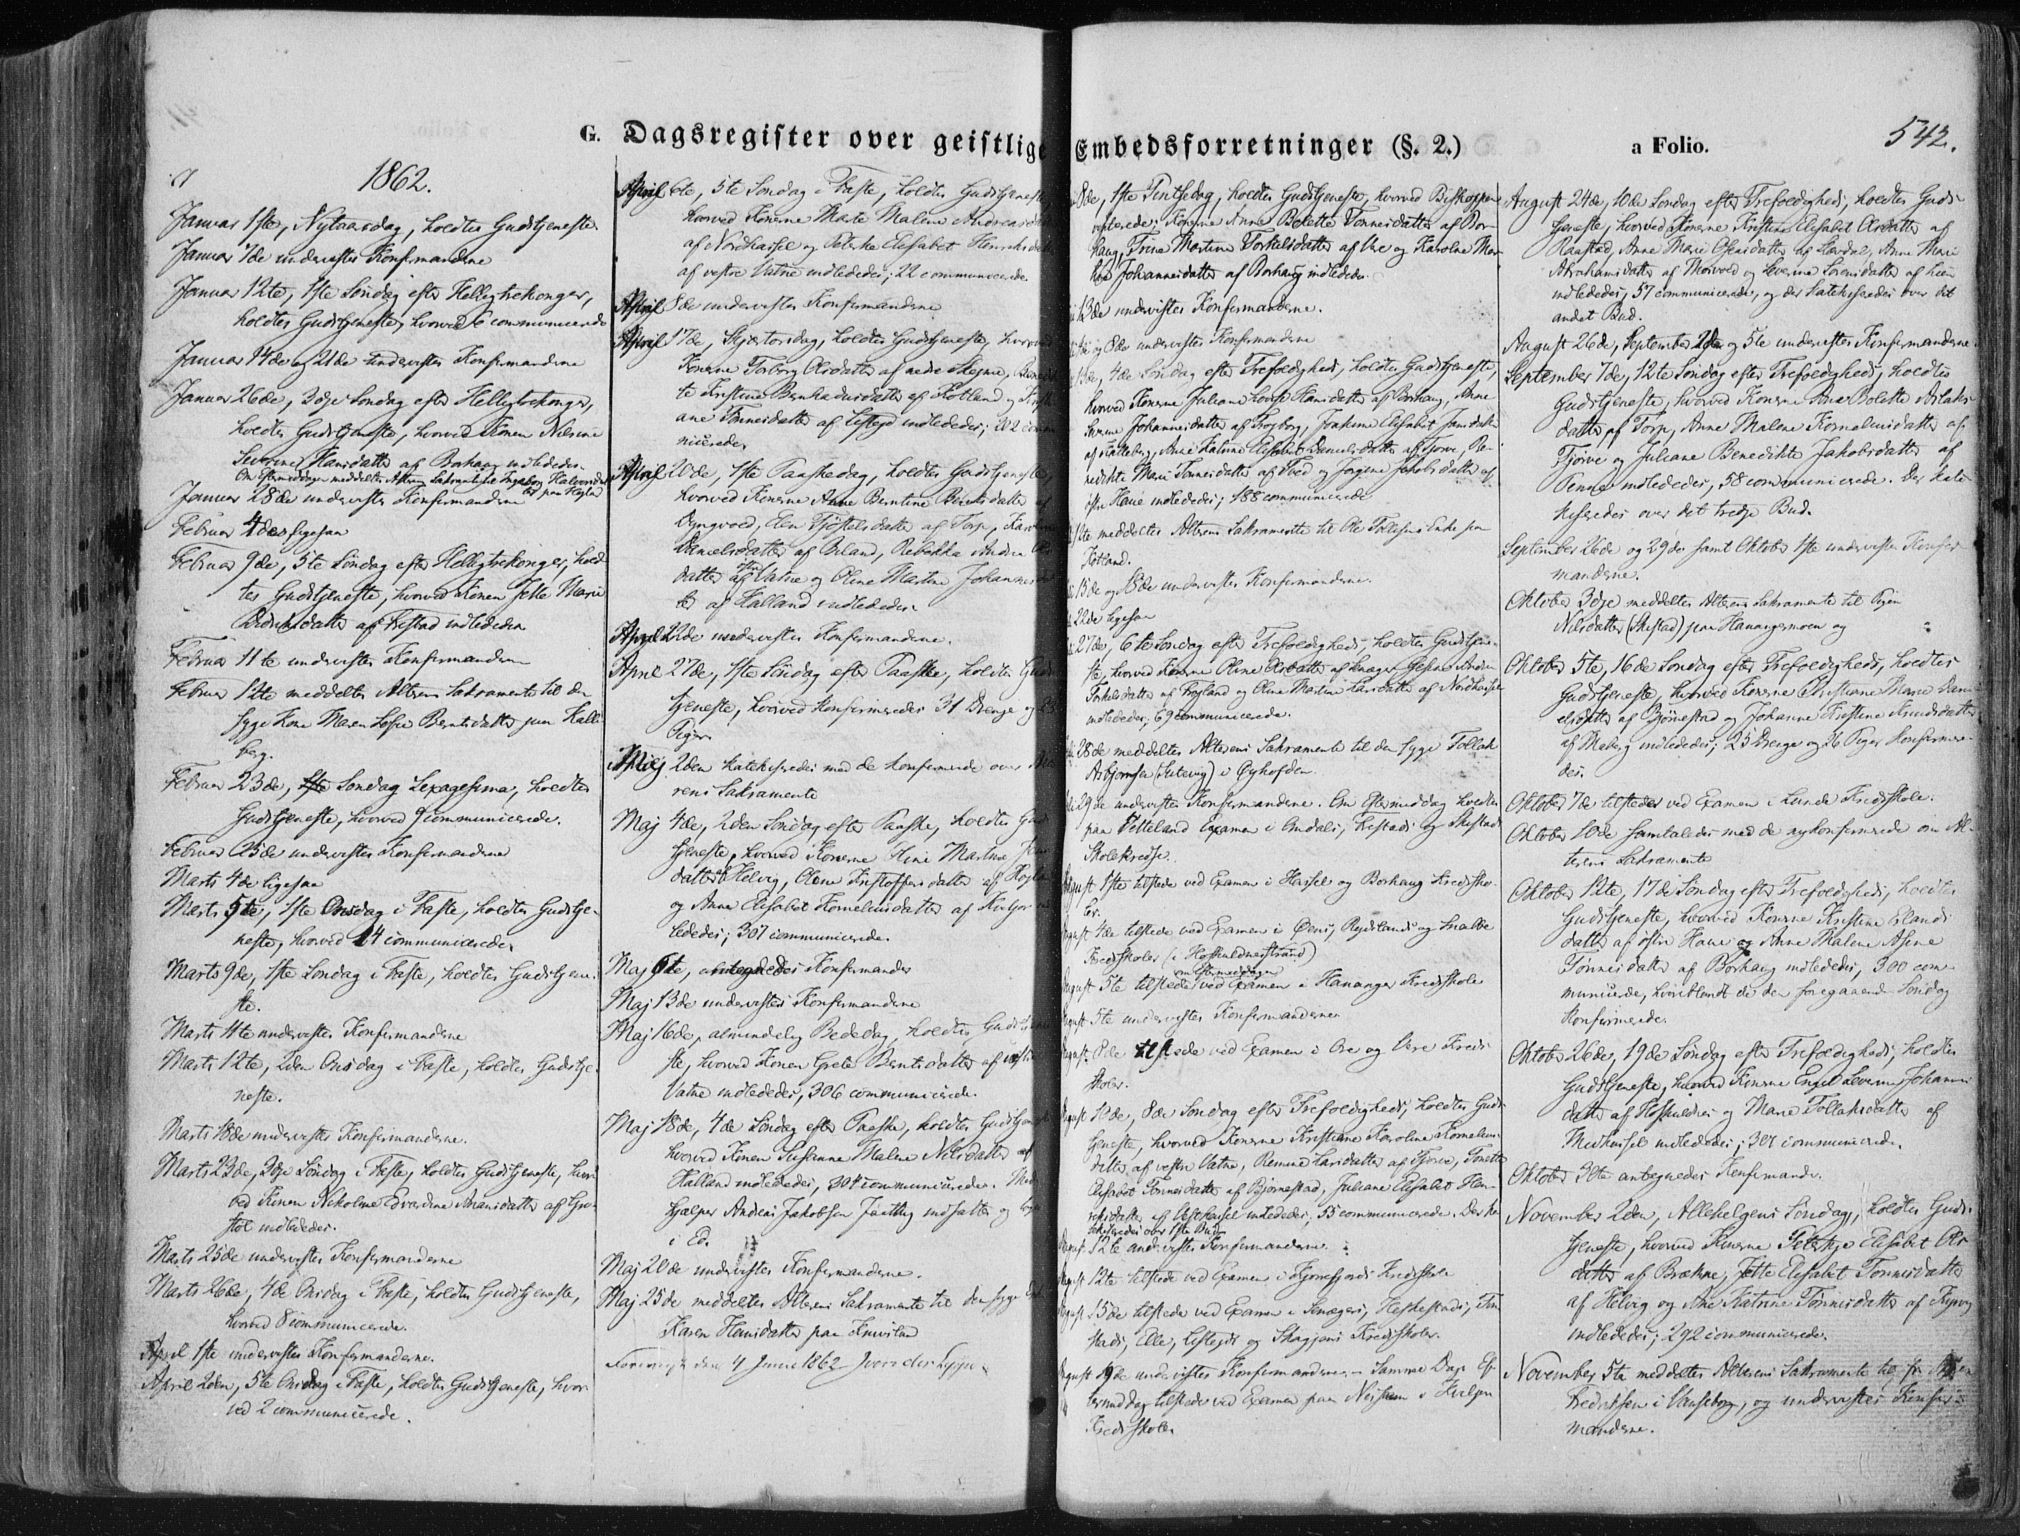 G. Dagsregister over geistlige Embedsforretninger (§. 2.) a Folio. 542.
1862.
Januar 1ste, Nytaarsdag, holdtes Gudstjeneste
Januar 7de undervistes Konfirmanderne
Januar 12te, 1ste Søndag efter Helligtrekonger,
holdtes Gudstjeneste, hvorved 6 communicerede
Januar 14de og 21de undervistes Konfirmanderne
Januar 26de, 3dje Søndag efter Helligtrekonger,
holdtes Gudstjeneste, hvorved Konen Nilsine
Severine Hansdatter af Borhaug indlededes.
Om Eftermiddagen meddeltes Alterens Sakramente til Ingeborg Halvorsdat-
ter paa
Januar 28de undervistes Konfirmanderne
Februar 4de ligesaa
Februar 9de, 5te Søndag efter Helligtrekonger, hold-
tes Gudstjeneste, hvorved Konen Jette Marie
datter af Frestad indlededes
Februar 11te undervistes Konfirmanderne
Februar 12te meddeltes Alterens Sakramente til den
syge Kone Maren Sofie Berntsdatter paa Kalle-
berg.
Februar 23de, Søndag Sexagesima, holdtes
Gudstjeneste, hvorved 9 communicerede.
Februar 25de undervistes Konfirmanderne
Marts 4de ligesaa
Marts 5te, 1ste Onsdag i Faste, holdtes Gudstje-
neste, hvorved 14 communicerede.
Marts 9de, 1ste Søndag i Faste, holdtes Gudstjene-
ste.
Marts 11te undervistes Konfirmanderne
Marts 12te, 2den Onsdag i Faste, holdtes Gudstje-
neste.
Marts 18de undervistes Konfirmanderne.
Marts 23de, 3dje Søndag i Faste, holdtes Gudstjeneste, hvor-
ved Konen Nikoline Edvardine Ananiasdatter af
indlededes.
Marts 25de undervistes Konfirmanderne
Marts 26de, 4de Onsdag i Faste, holdtes Gudstjeneste,
hvorved 8 communicerede.
April 1ste undervistes Konfirmanderne.
April 2den, 5te Onsdag i Faste, holdtes Gudstjeneste, hvor-
ved 2 communicerede.
April 6te, 5te Søndag i Faste, holdtes Gudstjeneste
hvorved Konerne Marie Malene Andreasdatter
af Nordhassel og Peterke Elisabet Henriksdatter
af vestre Vatne indlededes; 22 communicerede
April 8de undervistes Konfirmanderne
April 17de, Skjærtorsdag, holdtes Gudstjeneste, hvorved
Konerne Torborg Olsdatter af nedre Skeime, Benedik-
te Kristine Berntsdatter af Hotland og
ane Tønnesdatter af Listeid indlededes; 202 commu-
nicerede.
April 20de, 1ste Paaskedag, holdtes Gudstjeneste
hvorved Konerne Anne Berntine Berntsdatter af
Dyngvold, Elen datter af Torp, Karoline
Danielsdatter af Briland, Rebekka Andrea
datter af Vatne og Oline Martine Johannesdat-
ter af Halland indlededes
April 22de undervistes Konfirmanderne.
April 27de, 1ste Søndag efter Paaske, holdtes Guds-
tjeneste, hvorved konfirmeredes 31 Drenge og 23
Piger.
Maj 2den katekiseredes med de konfirmerede over Alte-
rens Sakramente
Maj 4de, 2den Søndag efter Paaske, holdtes Guds-
tjeneste, hvorved Konerne Martine
datter af Helvig, Oline Kristoffersdatter af
og Anne Elisabet Korneliusdatter af
lededes; 307 communicerede.
Maj 6te, antegnedes Konfirmander
Maj 13de undervistes Konfirmanderne
Maj 16de, almindelig Bededag, holdtes Gudstjene-
ste, hvorved Konen Grete Berntsdatter af vestre
Vatne indlededes, 306 communicerede.
Maj 18de, 4de Søndag efter Paaske, holdtes Gudstjeneste
hvorved Konen Susanne Malene Nilsdatter af
Halland indlededes, 304 communicerede.
hjælper Andreas Jakobsen indsattes og
i Ed.
Maj 20de undervistes Konfirmanderne.
Maj 25de meddeltes Alterens Sakramente til den syge
Karen Hansdatter paa
den 4 Juni 1862
8de, 1ste Pintsedag, holdtes Gudstjeneste, hvorved Biskoppen
visiterede; Konerne Anne Bolette Tønnesdatter af Bor-
haug, Trine Martine Torkelsdatter af Ore og Karoline Mar-
Johannesdatter af Borhaug indlededes.
13de undervistes Konfirmanderne.
og 8de undervistes Konfirmanderne
13de, 4de Søndag efter Trefoldigheds, holdtes Gudstjeneste,
hvorved Konerne Juliane Lovise Hansdatter af Borhaug, Anne
Severine Johannesdatter af Frogborg, Joakime Elisabet Jansdatter
af Kalleberg, Anne Kaline Elisabet Danielsdatter af Tjørve, Be-
nedikte Marie Tønnesdatter af og Jørgine Jakobsdatter af
østre Hauie indlededes; 188 communicerede
12te meddeltes Alterens Sakramente til Ole Tollefsens Enke paa
Kotland.
15de og 18de undervistes Konfirmanderne.
22de ligesaa
27de, 6te Søndag efter Trefoldigheds, holdtes Gudstjene-
ste, hvorved Konerne Oline Olsdatter af
Torkelsdatter af Frøyland og Oline Martine Larsdatter af Nordhassel
indlededes; 69 communicerede.
28de meddeltes Alterens Sakramente til den syge Tollak
Asbjørnsen () i
29de undervistes Konfirmanderne. Om Eftermiddag holdtes
paa Vetteland Examen i Omdals, Frestads og Skeistads
Skolekredse.
August 1ste tilstede ved Examen i Hassel og Borhaug Kredssko-
ler.
August 4de tilstede ved Examen i Øens, Rudslands og
Kredsskoler (i)
om Eftermiddagen
August 5te tilstede ved Examen i Hananger Kredsskole
August 5te undervistes Konfirmanderne
August 8de tilstede ved Examen i Ore og Vere Kreds-
skoler.
August 10de, 8de Søndag efter Trefoldigheds, holdtes Guds-
tjeneste, hvorved Konerne Kristiane Karoline Kornelius-
datter af vestre Vatne, Larsdatter af Tjørve, Tonette
Elisabet Tønnesdatter af Bjørnestad, Juliane Elisabet Hen-
riksdatter af Vesthassel indlededes; 55 communicerede. Der ka-
tekiseredes over 1ste Bud.
August 12te undervistes Konfirmanderne.
August 12te tilstede ved Examen i Kredsskole
August 15de tilstede ved Examen i
stads, Elle, Listeids og Kredsskoler.
August 19de undervistes Konfirmanderne. Samme Dags Ef-
termiddag tilstede ved Examen paa i
Kredsskole.
August 24de, 10de Søndag efter Trefoldigheds, holdtes Guds-
tjeneste, hvorved Konerne Kristine Elisabet Olsdatter af
Raastad, Anne Marie Olsdatter af Lavdal, Anne Marie
Abrahamsdatter af Morvold og Severine Sørensdatter af
indlededes, 57 communicerede, og der katekiseredes over det
andet Bud.
August 26de, September 2den og 5te undervistes Konfirmanderne.
September 7de, 12te Søndag efter Trefoldigheds, holdtes
Gudstjeneste, hvorved Konerne Anne Bolette Aslaks-
datter af Torp, Anne Malene Korneliusdatter af
Tjørve og Juliane Benedikte Jakobsdatter af
Penne indlededes, 58 communicerede. Der kate-
kiseredes over det tredje Bud.
September 26de og 29de samt Oktober 1ste undervistes Konfir-
manderne.
Oktober 3dje meddeltes Alterens Sakramente til Pigen
Nilsdatter (Skeistad) paa Hanangermoen og
Oktober 5te, 16de Søndag efter Trefoldigheds, holdtes
Gudstjeneste, hvorved Konerne Kristiane Marie Dani-
elsdatter af Bjørnestad og Johanne Kristine Knudsdatter
af Maberg indlededes; 25 Drenge og 36 Piger konfirmere-
des.
Oktober 7de tilstede ved Examen i Lunde Kredsskole.
Oktober 10de samtaledes med de nykonfirmerede om Al-
terens Sakramente
Oktober 12te, 17de Søndag efter Trefoldigheds, holdtes
Gudstjeneste, hvorved Konerne Kristine Erlands-
datter af østre Hauie og Anne Malene Asine
Tønnesdatter af Borhaug indlededes, 300 com-
municerede, hvoriblandt de den foregaaende Søndag
konfirmerede.
Oktober 26de, 19de Søndag efter Trefoldigheds, holdtes
Gudstjeneste, hvorved Konerne Engel Severine Johannes-
datter af og Marie Tollaksdatter af
Midhassel indlededes; 307 communicerede.
Oktober 30te antegnedes Konfirmander.
November 2den, Allehelgens Søndag, holdtes Guds-
tjeneste, hvorved Konerne Peterkje Elisabet Ols-
datter af Brækne, Jette Elisabet Tønnesdatter
af Helvig og Ane Katrine Tønnesdatter af
indlededes; 292 communicerede.
November 5te meddeltes Alterens Sakramente til
Fredriksen i Vanseborg, og undervistes Konfir-
manderne.